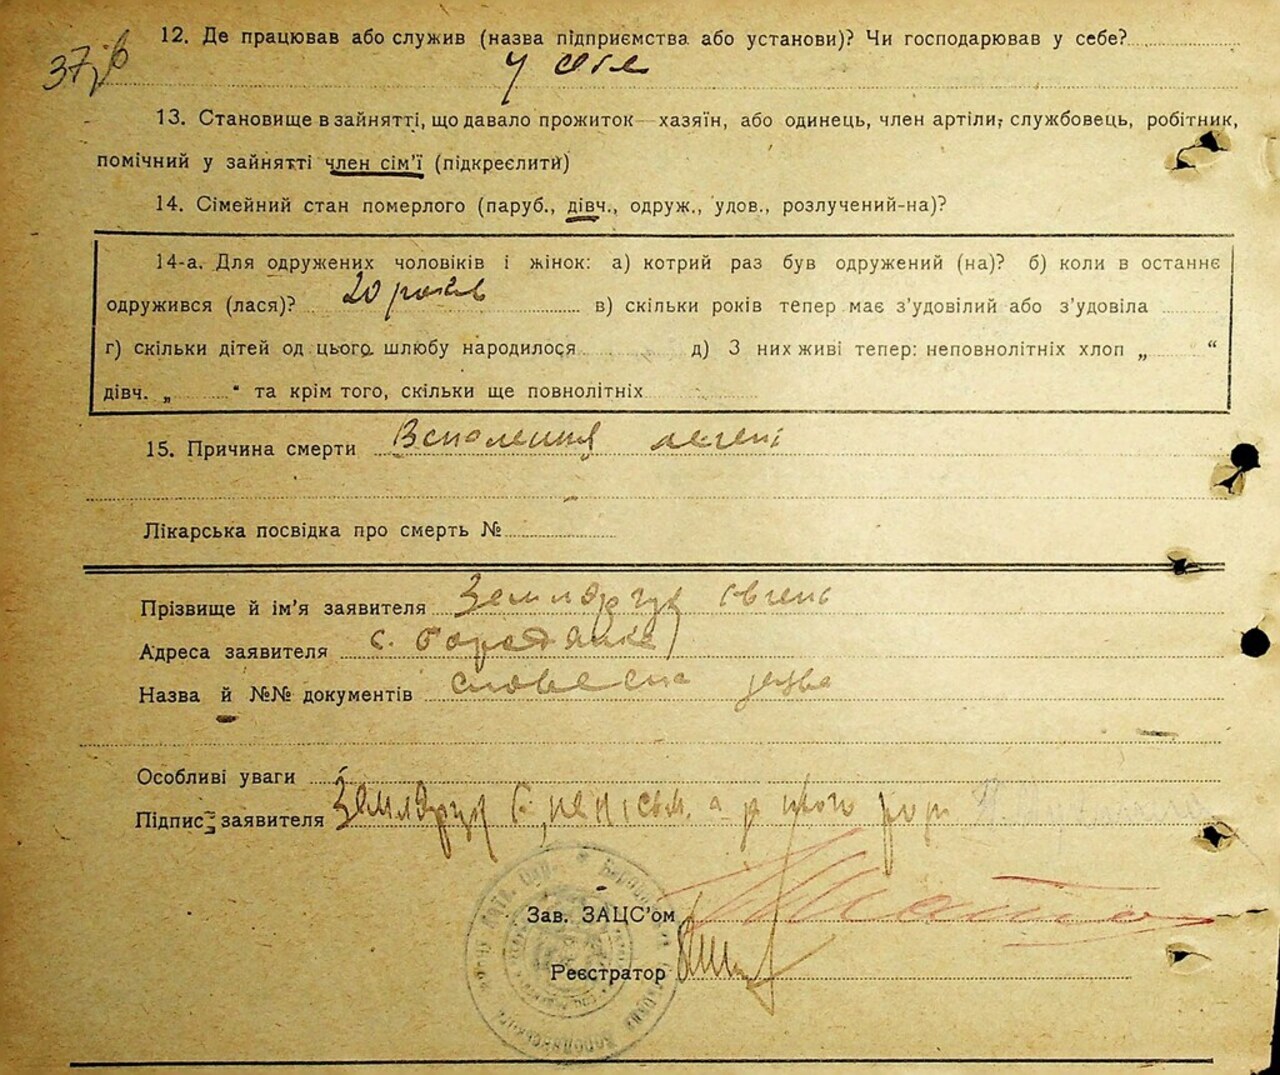 12. Де працював або служив (назва підприємства або установи)? Чи господарював у себе?
37
У себе
13. Становище в зайнятті, що давало прожиток—хазяїн, або одинець, член артілі, службовець, робітник,
помічний у зайнятті член сім'ї (підкреслити)
14. Сімейний стан померлого (паруб., дівч., одруж., удов., розлучений-на)?
14-а. Для одружених чоловіків і жінок: а) котрий раз був одружений (на)? б) коли в останнє
одружився (лася)? 20 років в) скільки років тепер має з'удовілий або з'удовіла
г) скільки дітей од цього шлюбу народилося д) З них живі тепер: неповнолітніх хлоп „ “
дівч. „ “ та крім того, скільки ще повнолітніх
15. Причина смерти Вспалення легені
Лікарська посвідка про смерть №
Прізвище й ім'я заявителя Землярук Євгень
Адреса заявителя с. Бородянка
Назва й №№ документів словесна заява
Особливі уваги
Підпис заявителя Землярук Є.
Зав. ЗАЦС'ом
Реєстратор